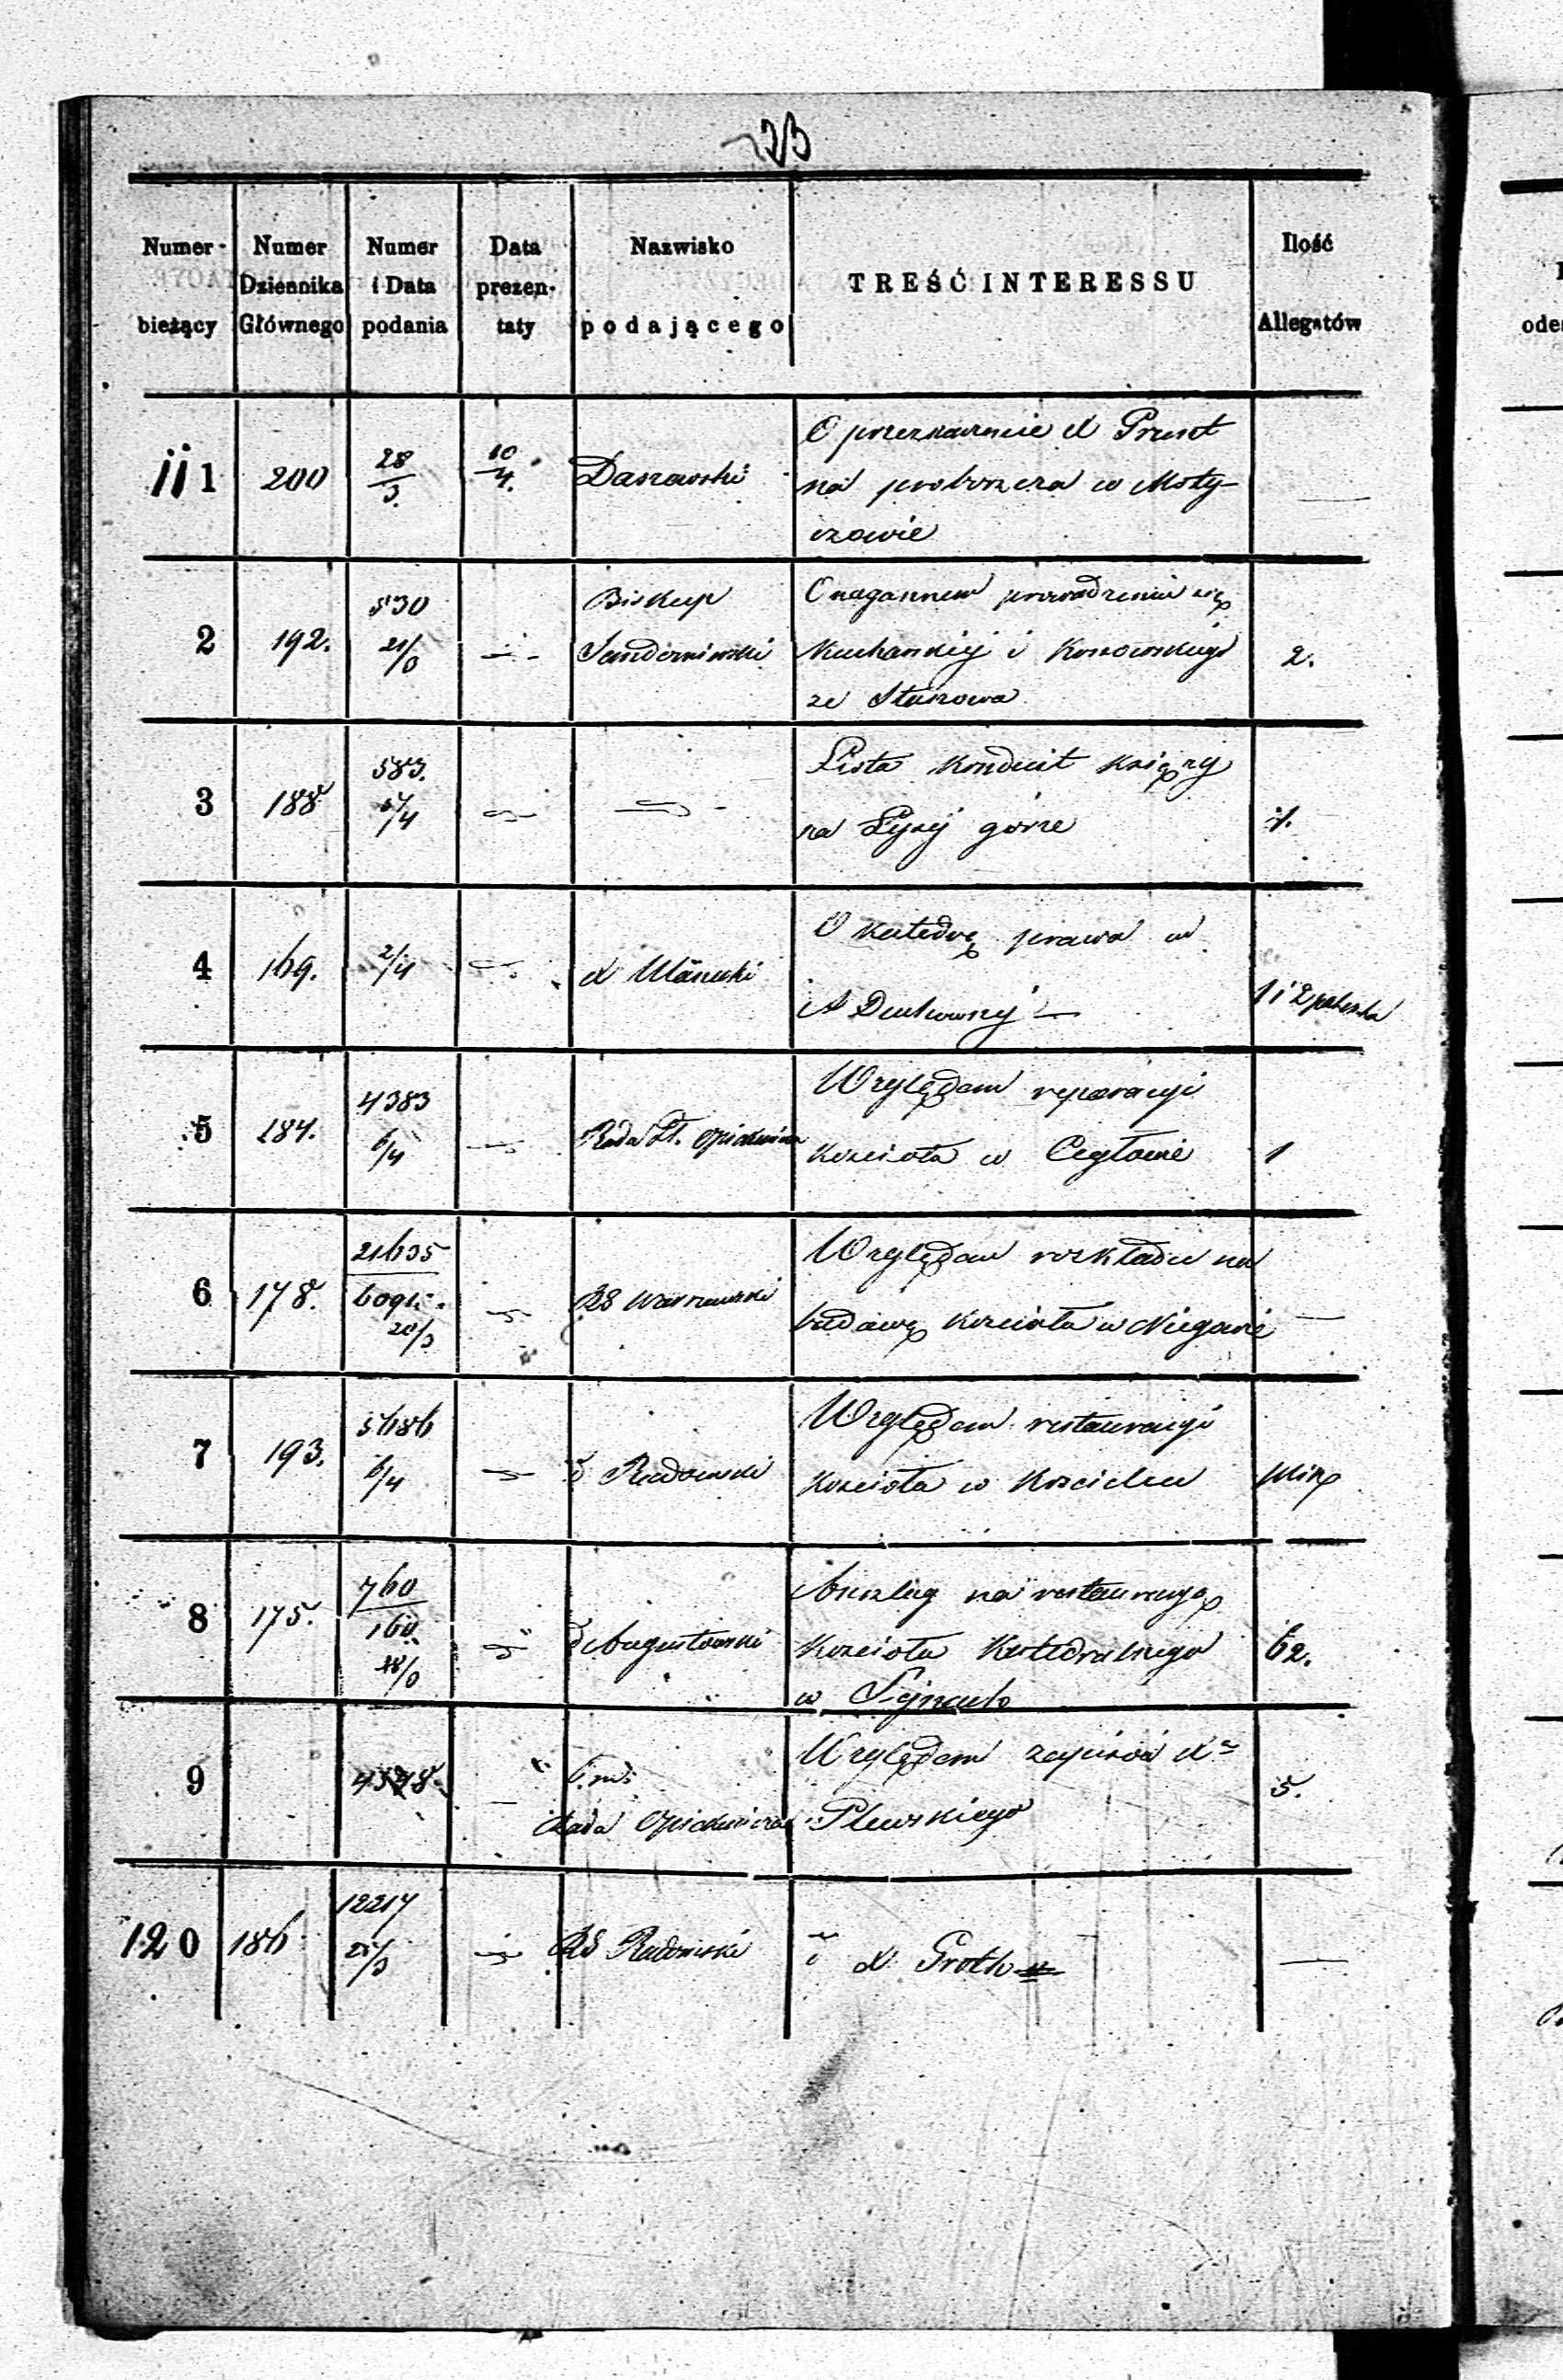 23
Numer bieżący | Numer Dziennika Głównego | Numer i Data podania | Data prezentaty | Nazwisko podającego | TREŚĆ INTERESSU | Ilość Allegatów
111 | 200 | 28/3. | 10/4. | Daszewski | O przeznaczenie X Prust
na proboszcza w Moty-
czowie | —
2 | 192. | 530 21/3 | Biskup
Sandomierski | O nagannem prowadzeniu się
Kucharskiej i Kossowskiego
ze Staszowa | 2.
3 | 188 | 583. 4/4 | Lista konduit księży
na Łysej górze | 1.
4 | 169. | 2/4 | X Ulanecki | O katedrę prawa w
A Duchownej — | 1 i 2 paszka
5 | 184. | 4383 6/4 | Rada Sz. Opiekuńcza | Względem reparacyi
Kościoła w Cegłowie | 1
6 | 178. | 21635/6096. 20/3 | RG Warszawski | Względem rozkładu na
budowę kościoła w Niegowie | —
7 | 193. | 5686 6/4 | " Radomski | Względem restauracyi
Kościoła w Kościelcu | plik
8 | 175. | 760/160 18/3 | " Augustowski | Anszlag na restauracyę
Kościoła Katedralnego
w Sejnach | 62.
9 | 4548. | Rada Opiekuńcza | Względem zapisów Xa
Plewskiego | 5.
120 | 186 | 12217 21/3 | RG Radomski | " X Groth | —